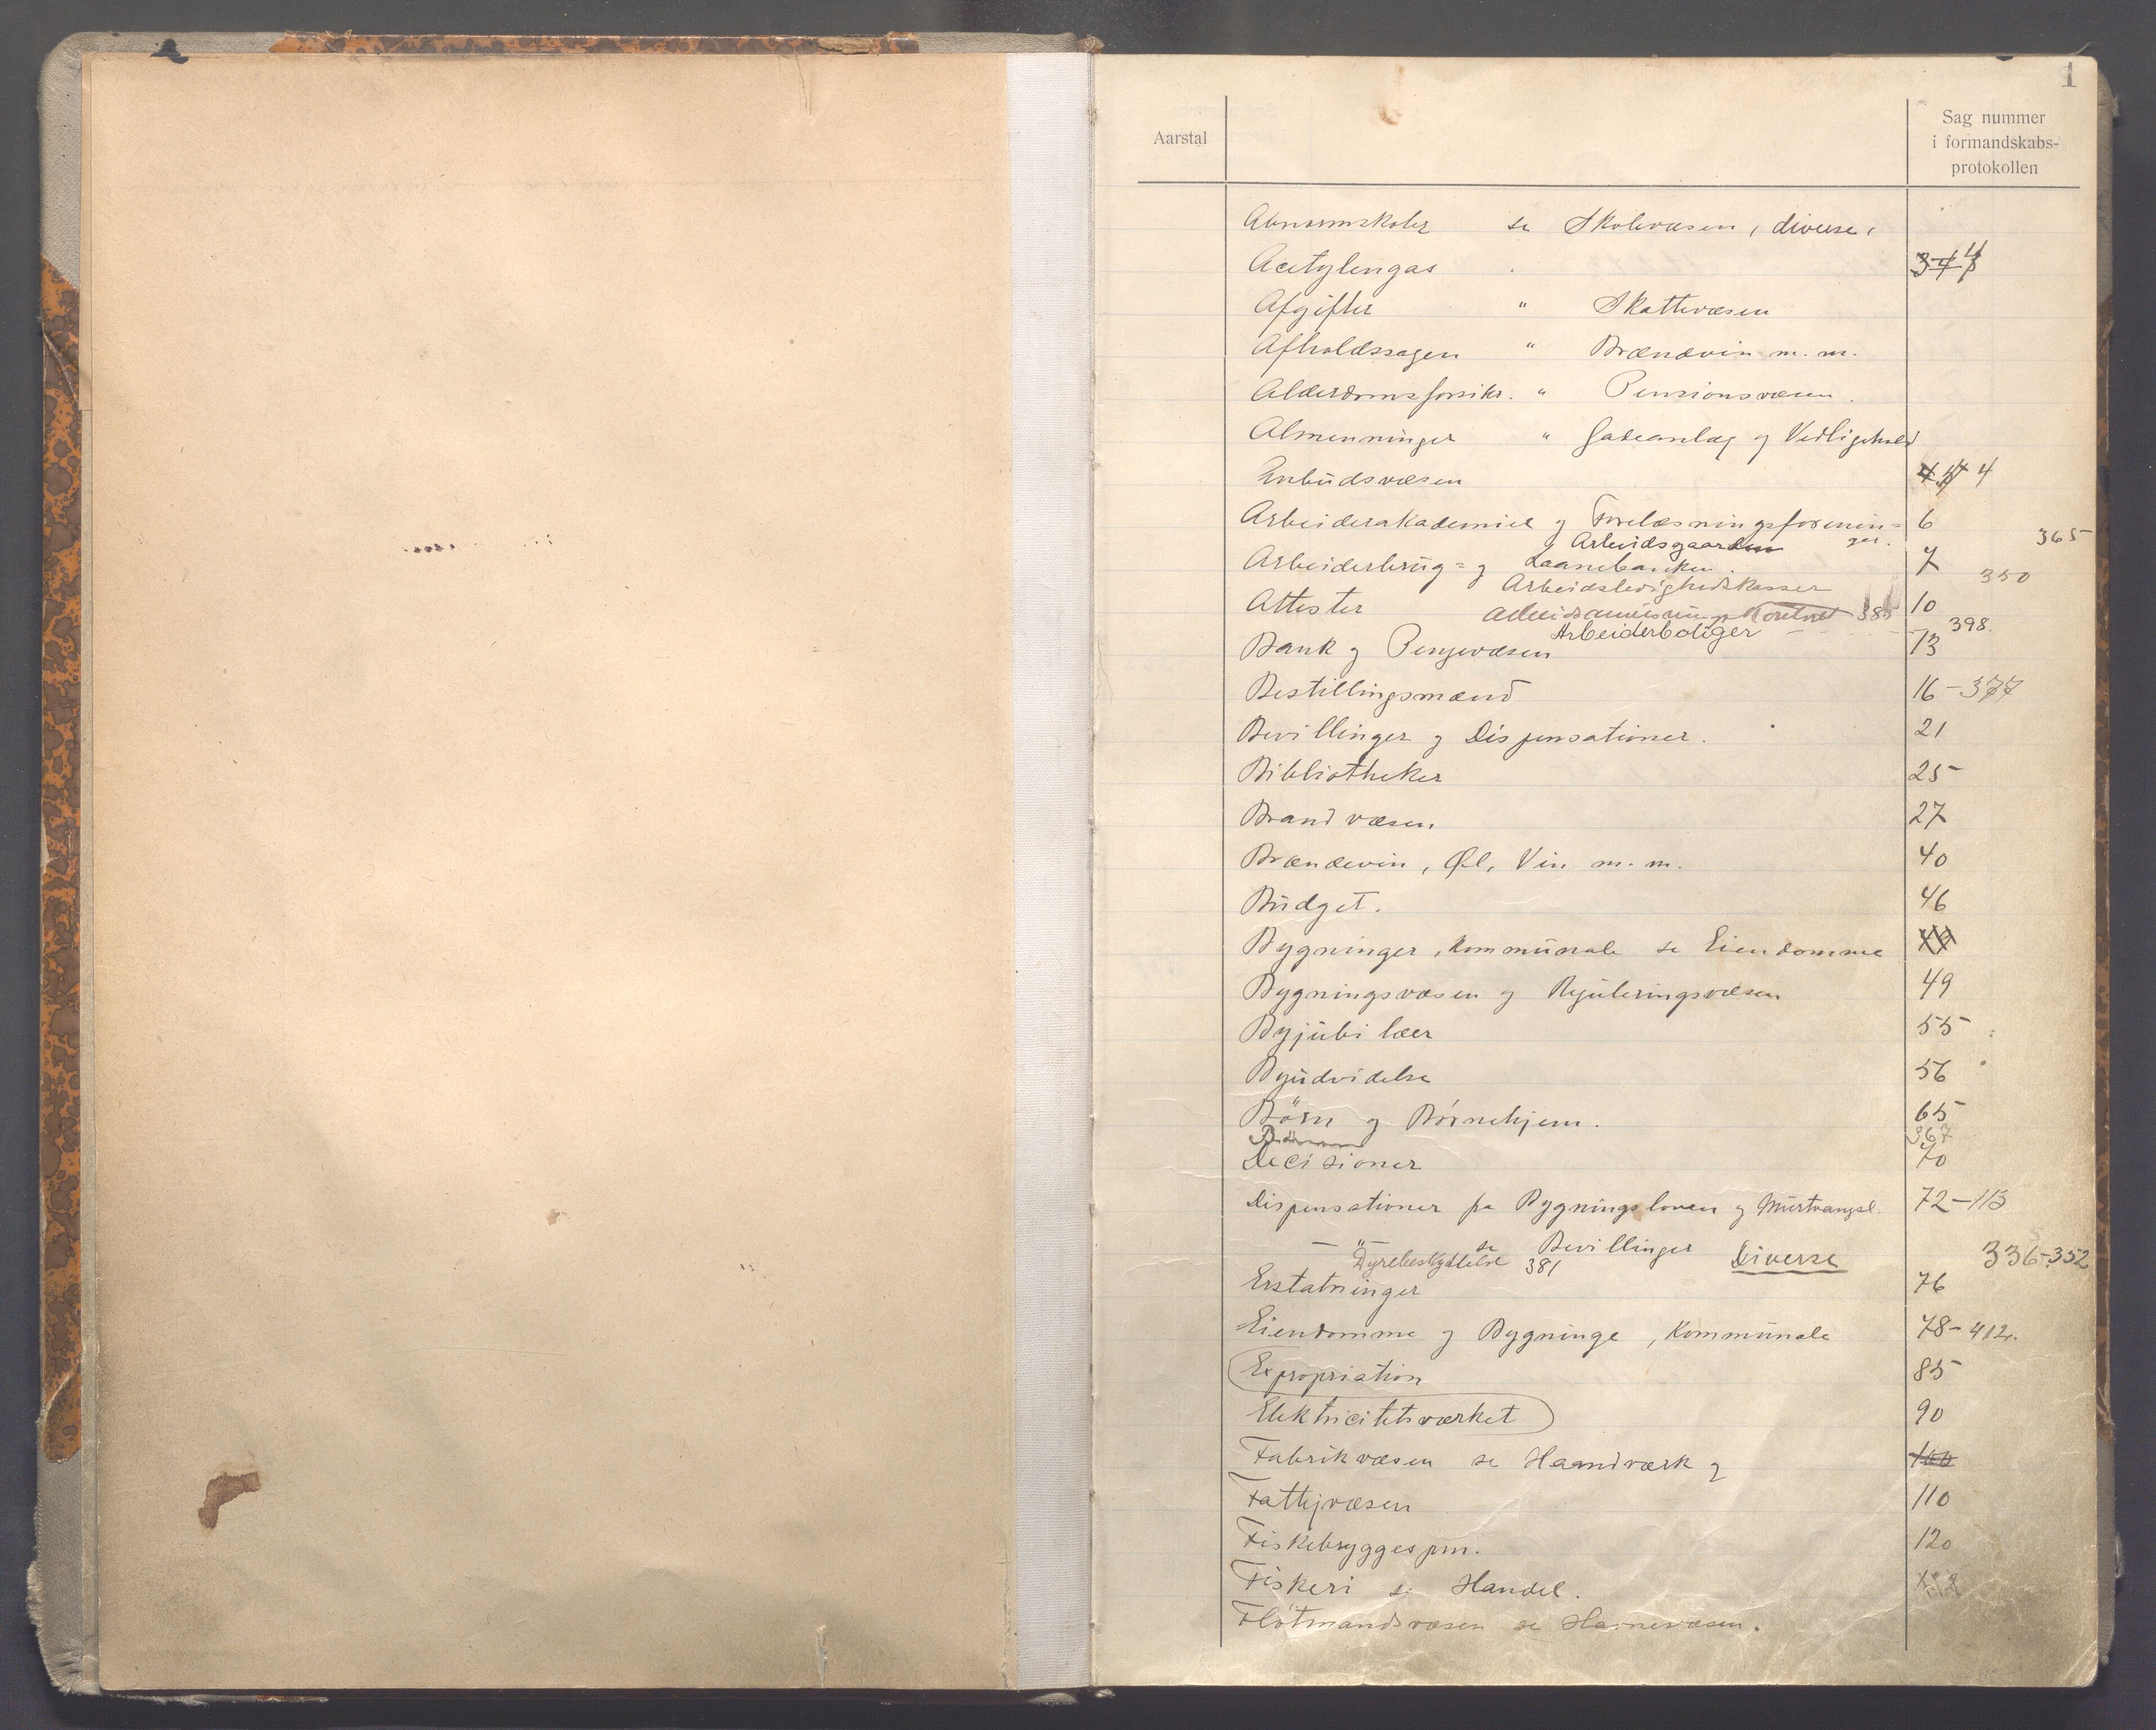 1
Aarstal
Sag nummer
i formandskabs-
protokollen
Abnormskoler se Skolevæsen, diverse,
Acetylengas
Afgifter " Skattevæsen
Afholdssagen " Brændevin m. m.
Alderdomsforsikr. " Pensionsvæsen.
Almenninger " Gadeanlæg og Vedligehold
Anbudsvæsen 4
Arbeiderakademiet og Forelæsningsforenin= 6
ger. 365
og Arbeidsgaarden
Arbeiderbrug= og Laanebanken. 7
Arbeidsledighedskasser 350
Attester 10
Arbeidsanvisningskontoret 385
Arbeiderboliger 398.
Bank og Pengevæsen 13
Bestillingsmænd 16-377
Bevillinger og Dispensationer. 21
Bibliotheker 25
Brandvæsen 27
Brændevin, Øl, Vin m. m. 40
Budget. 46
Bygninger, kommunale se Eiendomme
Bygningsvæsen og Reguleringsvæsen 49
Byjubilæer 55
Byudvidelse 56
Börn og Börnehjem. 65
367
Decisioner 70
Dispensationer fra Bygningsloven og Murtvangsl. 72-113
— " — se Bevillinger Diverse 336-352
Dyrebeskyttelse 381
Erstatninger 76
Eiendomme og Bygninge, kommunale 78-412.
Expropriation 85
Elektricitetsværket 90
Fabrikvæsen se Haandværk og 100
Fattigvæsen 110
Fiskebryggespm. 120
Fiskeri se Handel.
Flötmandsvæsen se Havnevæsen.